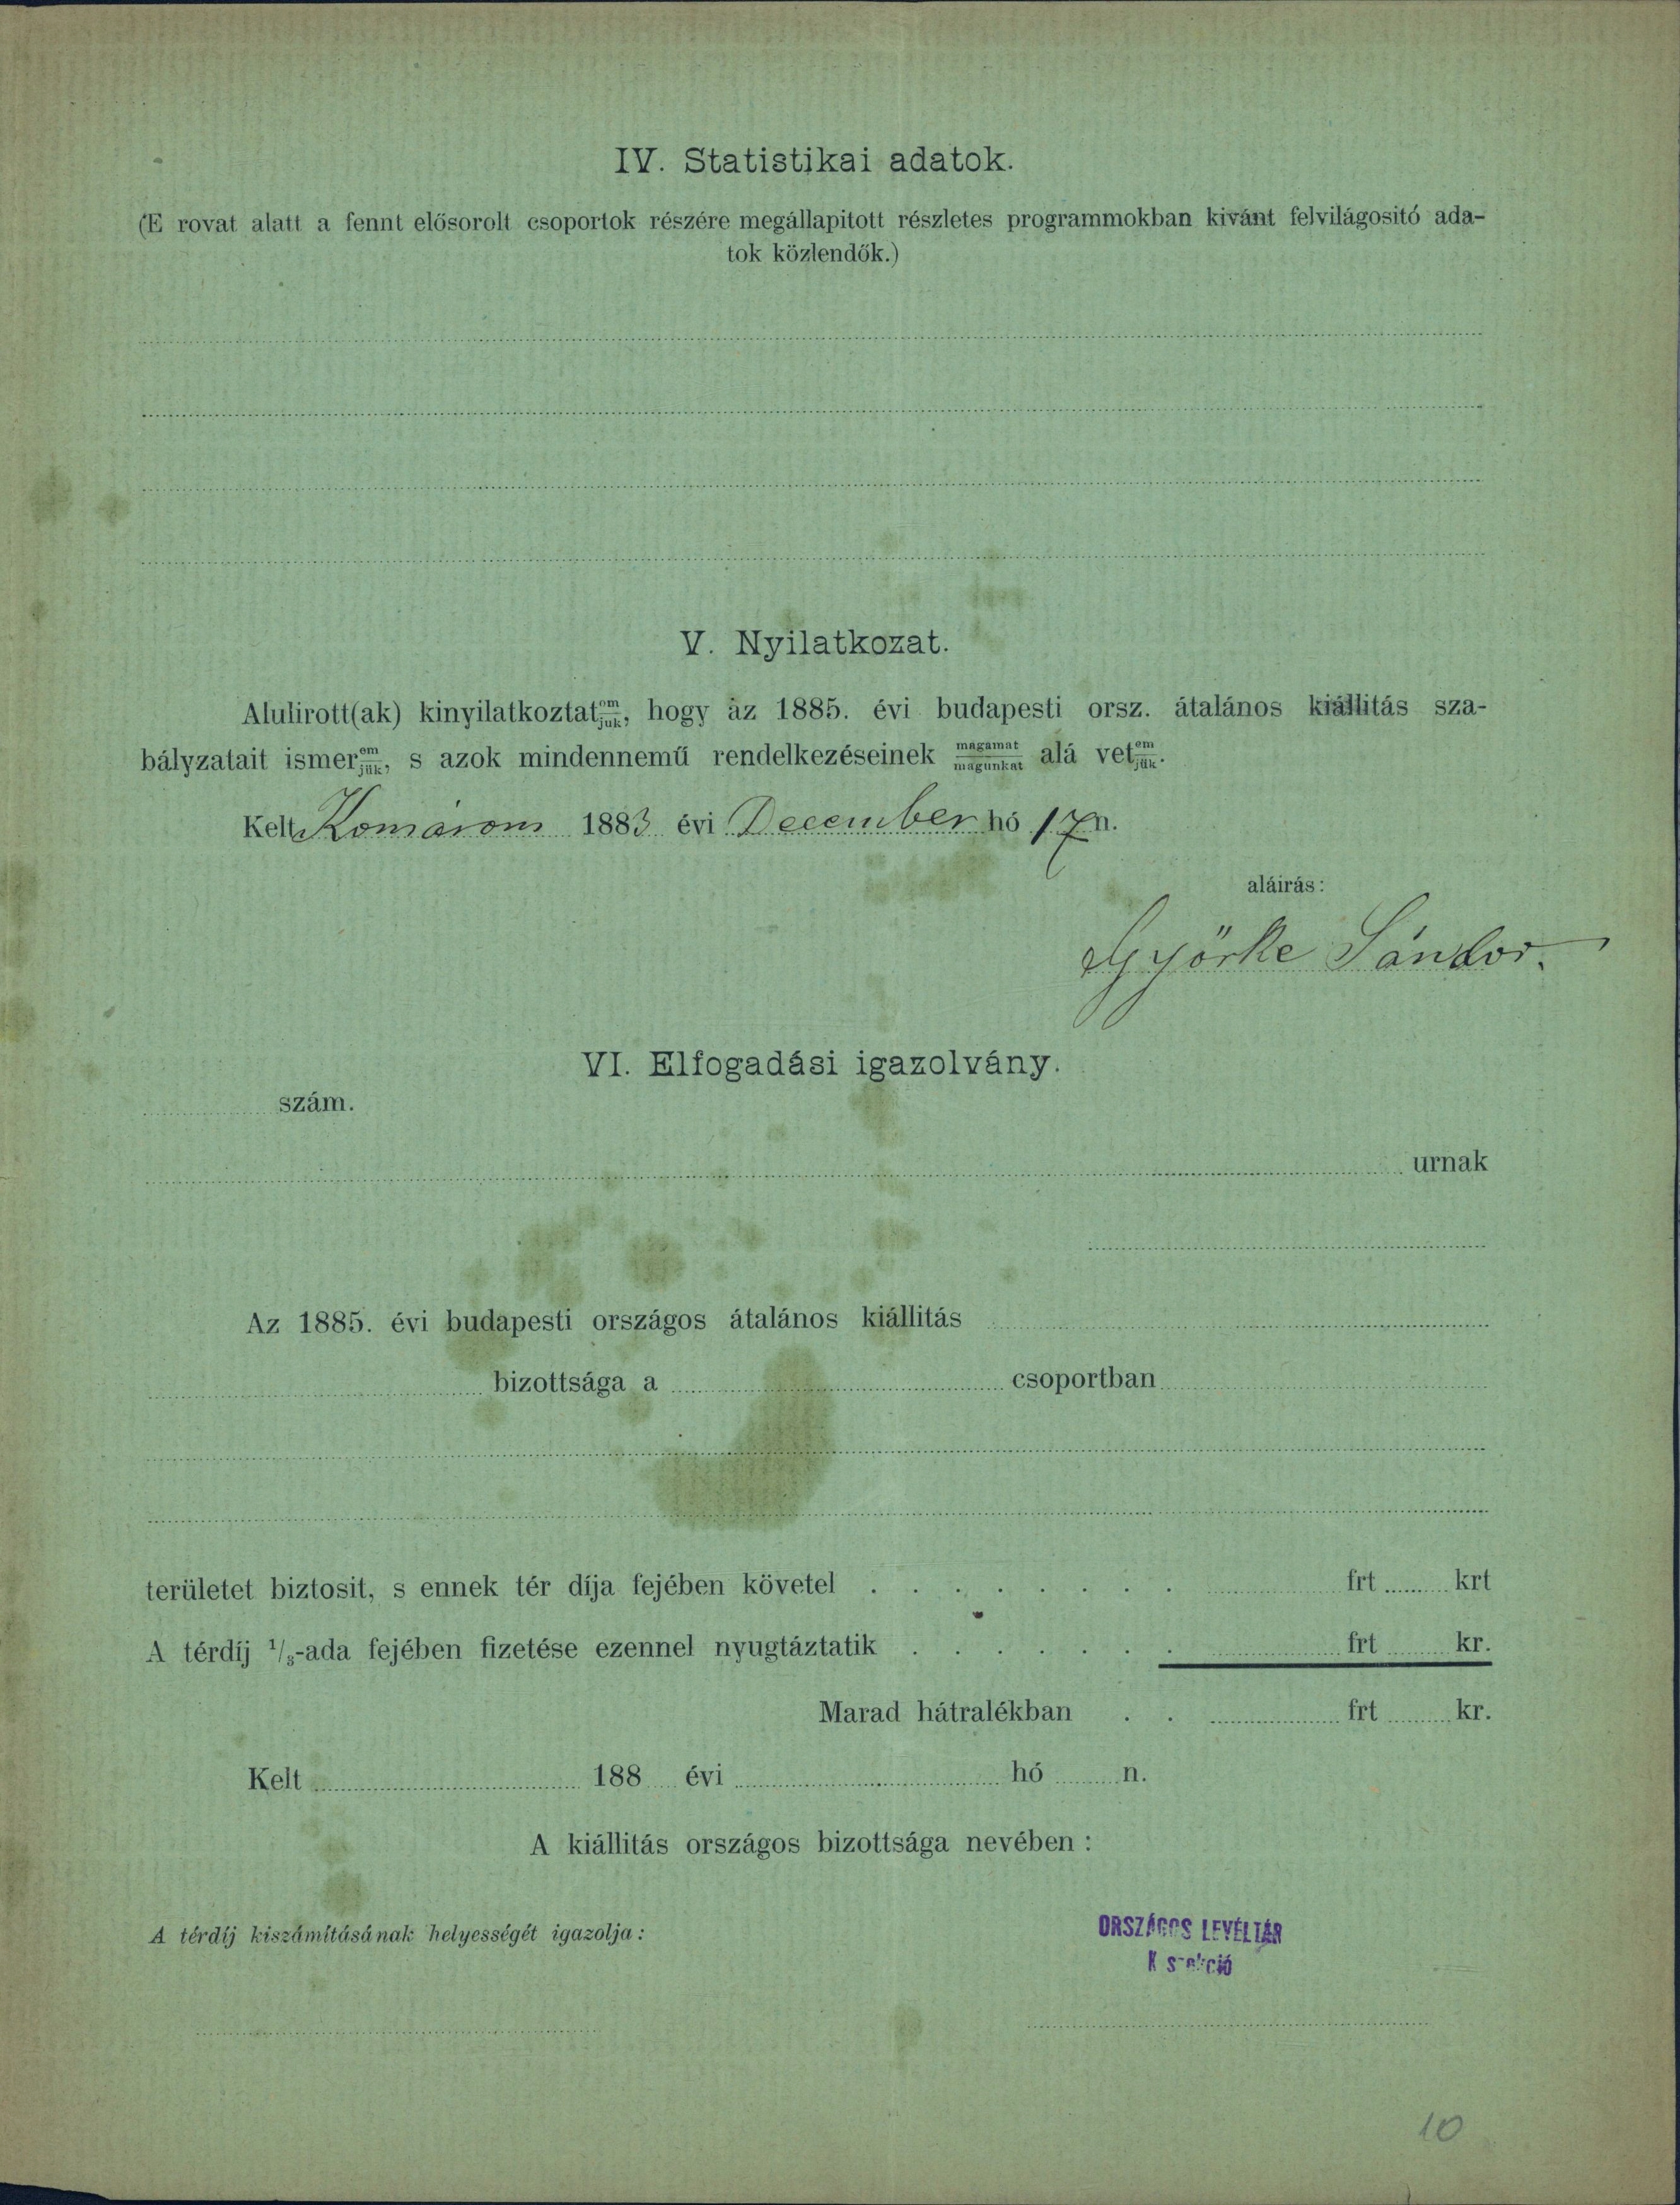 IV. Statistikai adatok.
(E rovat alatt a fennt elősorolt csoportok részére megállapitott részletes programmokban kivánt felvilágositó ada-
tok közlendők.)
V. Nyilatkozat.
Alulirott(ak) kinyilatkoztat om/juk, hogy az 1885. évi budapesti orsz. átalános kiállitás sza-
bályzatait ismer em/jük, s azok mindennemű rendelkezéseinek magamat/magunkat alá vet em/jük.
Kelt Komárom 1883 évi December hó 17 n.
aláirás:
Györke Sándor.
VI. Elfogadási igazolvány.
szám.
urnak
Az 1885. évi budapesti országos átalános kiállitás
bizottsága a csoportban
területet biztosit, s ennek tér díja fejében követel . . . . . . . . frt krt
A térdíj 1/3-ada fejében fizetése ezennel nyugtáztatik . . . . . . . frt kr.
Marad hátralékban . . frt kr.
Kelt 188 évi hó n.
A kiállitás országos bizottsága nevében :
A térdíj kiszámításának helyességét igazolja :
ORSZÁGOS LEVÉLTÁR
K szekció
10